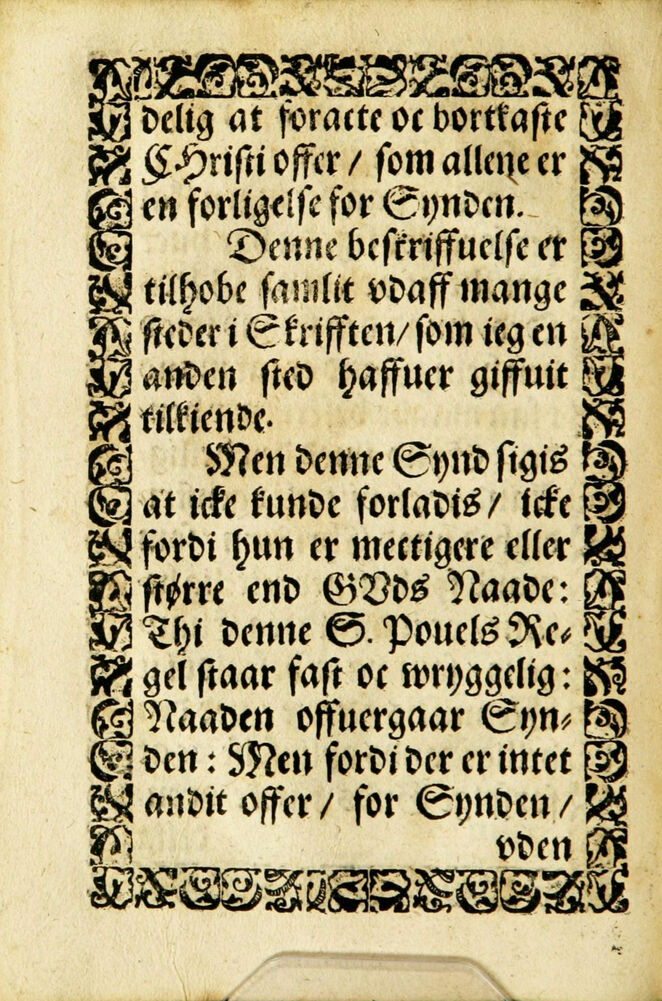 delig at foracte oc bortkaste
CHristi offer / som allene er
en forligelse for Synden.
Denne beskriffuelse er
tilhobe samlit vdaff mange
steder i Skrifften / som ieg en
anden sted haffuer giffuit
tilkiende.
Men denne Synd sigis
at icke kunde forladis / icke
fordi hun er mectigere eller
større end GVds Naade:
Thi denne S. Pouels Re⸗
gel staar fast oc wryggelig:
Naaden offuergaar Syn⸗
den: Men fordi der er intet
andit offer / for Synden /
vden